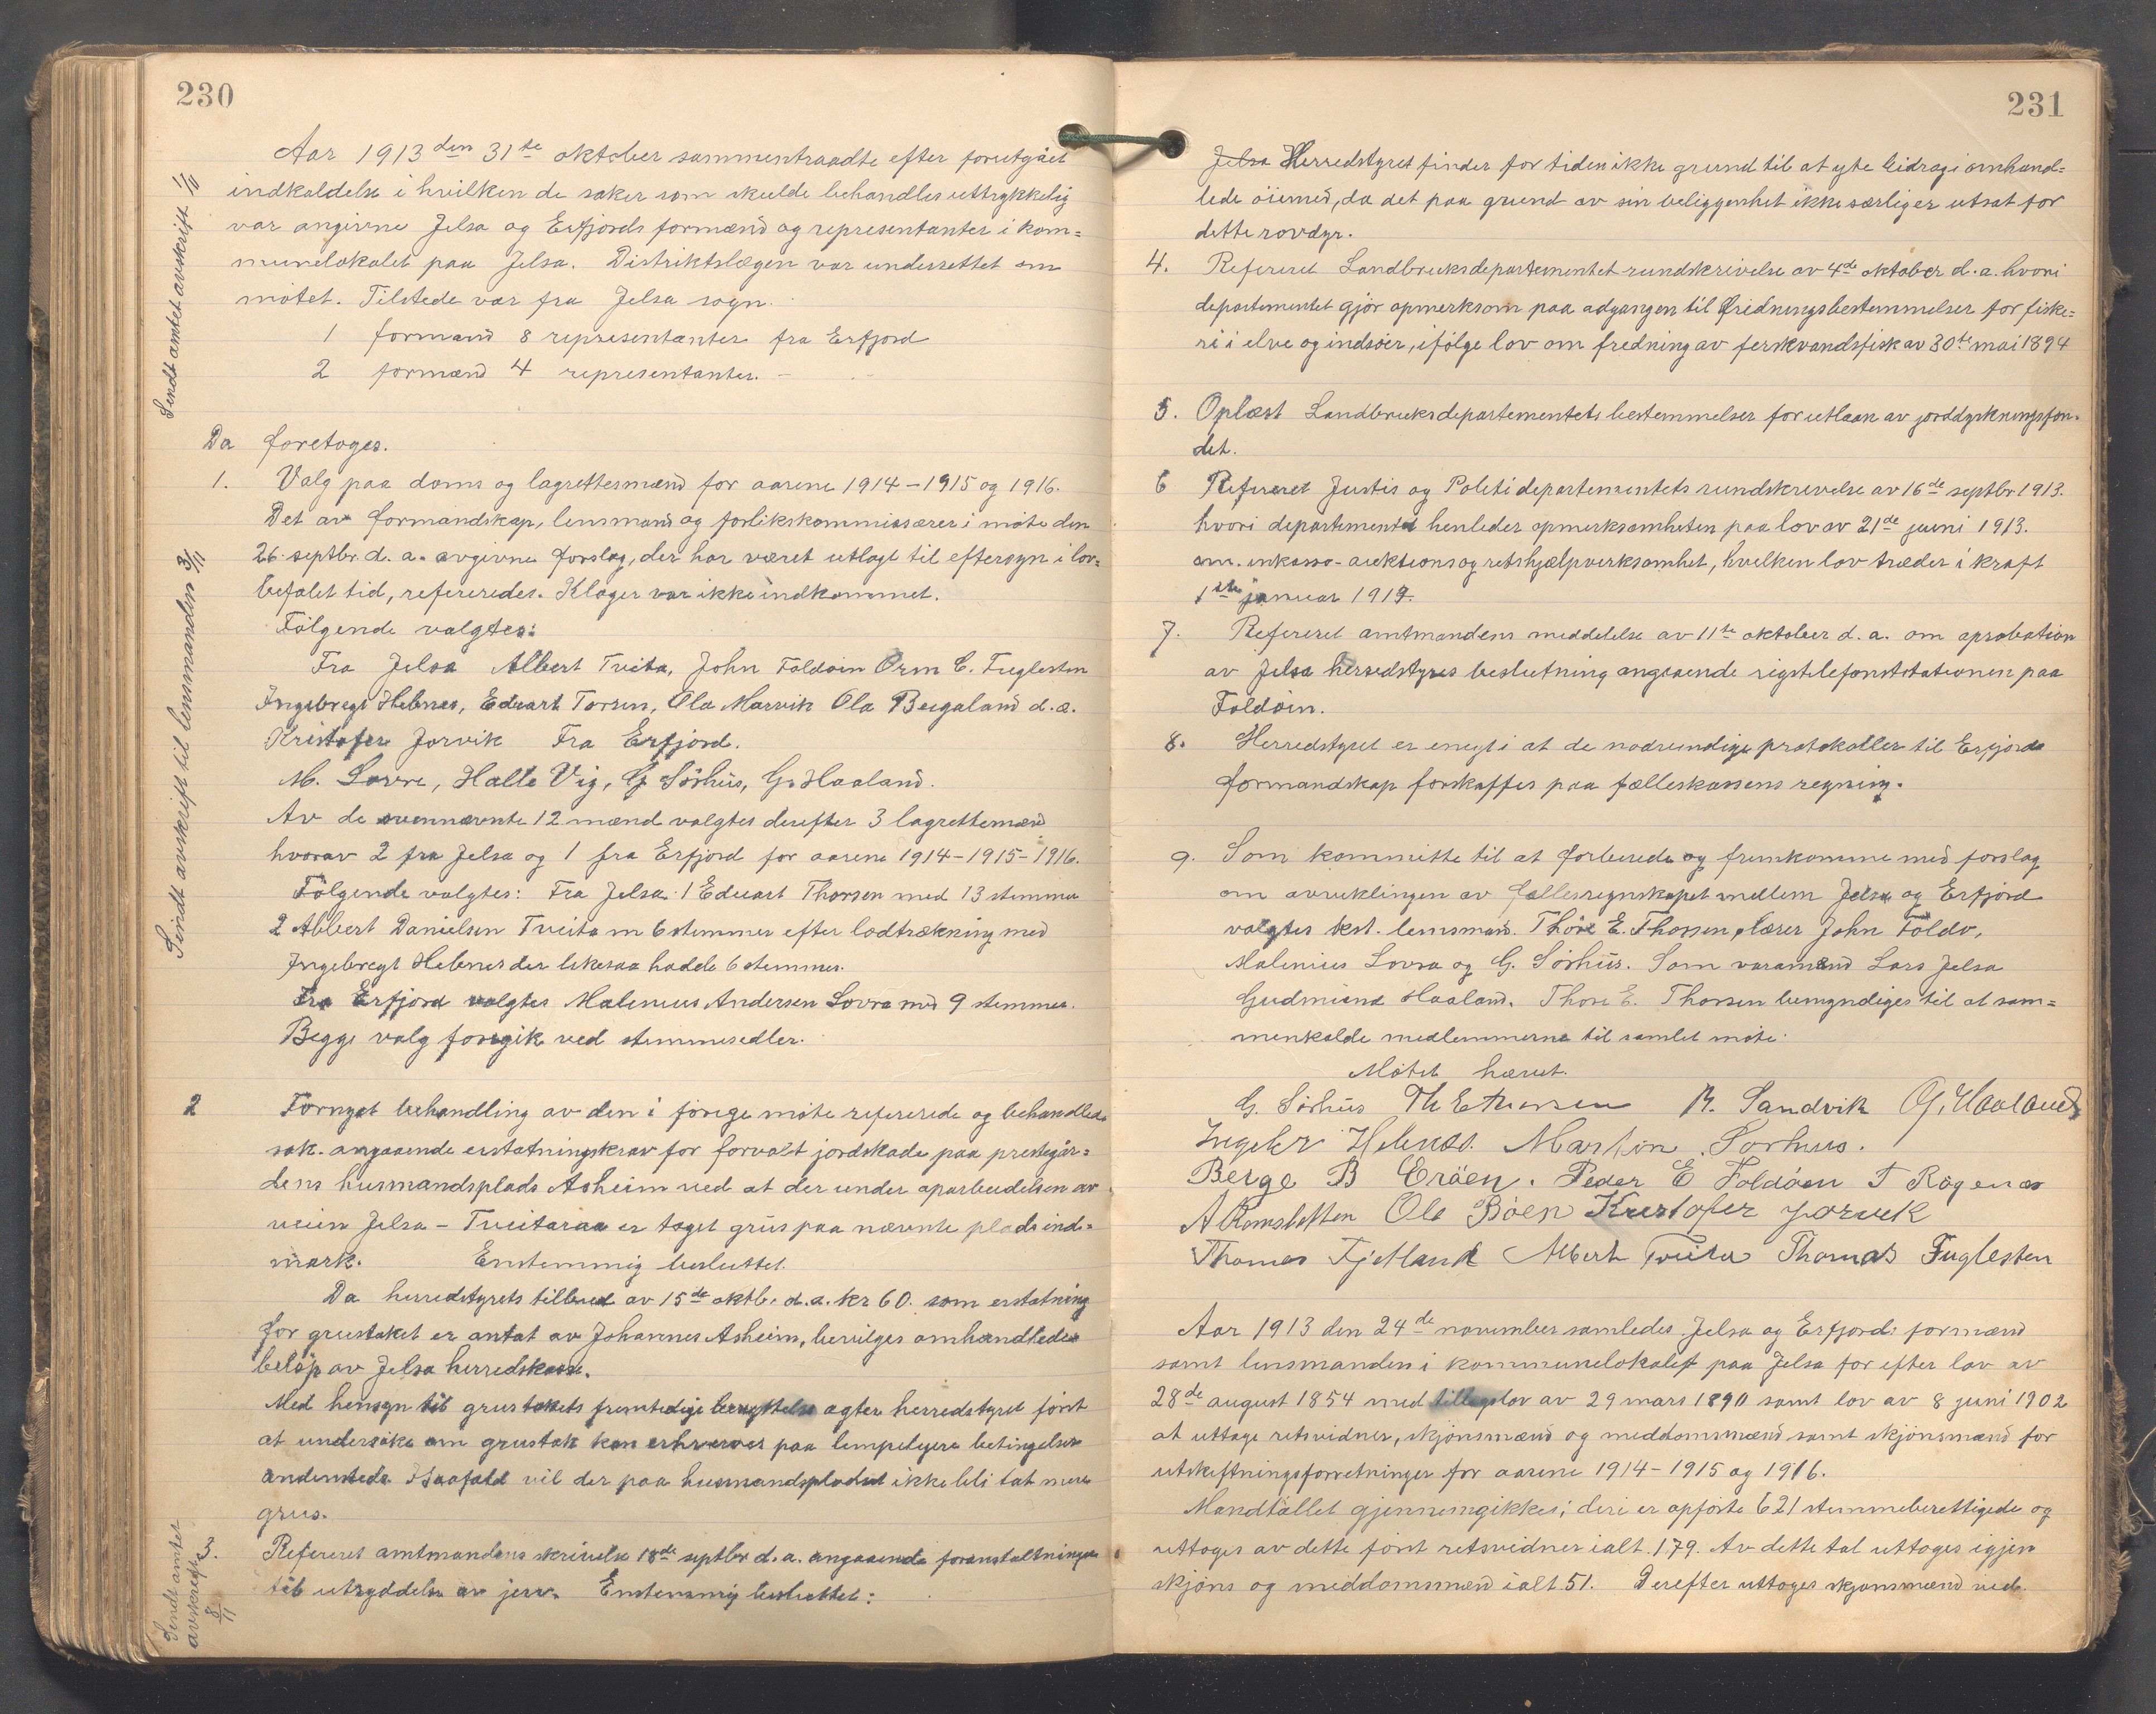 230
Aar 1913 den 31te oktober sammentraadte efter forutgået
indkaldelse i hvilken de saker som skulde behandles uttrykkelig
var angivne Jelsa og Erfjords formænd og representanter i kom=
munelokalet paa Jelsa. Distriktslægen var underrettet om
møtet. Tilstede var fra Jelsa sogn.
1 formand 8 representanter fra Erfjord
2 formænd 4 representanter. -
Sendt amtet avskrift 1/11
Da foretoges.
1. Valg paa doms og lagrettesmænd for aarene 1914-1915 og 1916.
Det av formandskap, lensmand og forlikskommissærer i møte den
26. septbr. d. a. avgivne forslag, der har været utlagt til eftersyn i lov=
befalet tid, refereredes. Klager var ikke indkommet.
Følgende valgtes:
Fra Jelsa Albert Tveita, John Foldøin Orm C. Fuglesten
Ingebregt Helenes, Eduart Torsen, Ola Marvik Ola Bergaland d. æ.
Kristofer Jorvik Fra Erfjord.
M. Lovra, Halle Vig, G Sørhus, G. Haaland.
Av de ovennævnte 12 mænd valgtes derefter 3 lagrettemænd
hvorav 2 fra Jelsa og 1 fra Erfjord for aarene 1914-1915-1916.
Følgende valgtes: Fra Jelsa. 1 Eduart Thorsen med 13 stemmer
2 Albert Danielsen Tveita m 6 stemmer efter lodtrækning med
Ingebregt Helenes der likesaa hadde 6 stemmer.
Fra Erfjord valgtes Malenius Andersen Lovra med 9 stemmer.
Begge valg foregik ved stemmesedler.
Sendt avskrift til lensmanden 3/11
2 Fornyet behandling av den i forrige møte refererede og behandlede
sak. angaaende erstatningskrav for forvoldt jordskade paa prestegår=
dens husmandsplads Asheim ved at der under oparbeidelsen av
veien Jelsa - Tveitaraa er taget grus paa nævnte plads ind=
mark. Enstemmig besluttet.
Da herredstyrets tilbud av 15de oktb. d.a. kr 60. som erstatning
for grustaket er antat av Johannes Asheim, bevilges omhandlede
beløp av Jelsa herredskasse.
Med hensyn til grustakets fremtidige benyttelse agter herredstyret først
at undersøke om grustak kan erhverves paa lempeligere betingelser
andensteds. Isaafald vil der paa husmandspladsen ikke bli tat mere
grus.
3. Referert amtmandens skrivelse 18de septbr d. a. angaaende foranstaltninger
til utryddelse av jerv. Enstemmig besluttet:
Sendt amtet
avskrift
8/11
231
Jelsa Herredstyret finder for tiden ikke grund til at yte bidrag i omhand=
lede øiemed, da det paa grund av sin beliggenhet ikke særlig er utsat for
dette rovdyr.
4. Refereret Landbruksdepartementet rundskrivelse av 4de oktober d. a. hvori
departementet gjør opmerksom paa adgangen til fredningsbestemmelser for fiske=
ri i elve og indsøer, ifølge lov om fredning av ferskvandsfisk av 30te mai 1894
5. Oplæst Landbruksdepartementets bestemmelser for utlaan av jorddyrkningsfon=
det.
6 Refereret Justis og Politidepartementets rundskrivelse av 16de septbr 1913.
hvori departementet henleder opmerksomheten paa lov av 21de juni 1913.
om. inkasso- auktions og retshjælpverksomhet, hvilken lov træder i kraft
1ste januar 1914.
7. Refereret amtmandens meddelelse av 11te oktober d. a. om aprobation
av Jelsa herredstyres beslutning angaaende rigstelefonstationen paa
Foldøin.
8. Herredstyret er enigt i at de nødvendige protokoller til Erfjords
formandskap forskaffes paa fælleskassens regning.
9. Som kommitte til at forberede og fremkomme med forslag
om avviklingen av fællesregnskapet mellem Jelsa og Erfjord
valgtes kst. lensmand. Thore E. Thorsen, lærer John Foldø,
Malenius Lovra og G. Sørhus. Som varamænd Lars Jelsa
Gudmund Haaland. Thore E. Thorsen bemyndiges til at sam=
menkalde medlemmerne til samlet møte.
Møtet hævet.
G. Sørhus Th E Thorsen M. Sandvik G. Haaland
Ingebr Helenes. Martin Sørhus.
Berge B Erøen. Peder E Foldøen T Røgenes
A Ramsletten Ole Bøen Kristofer Jorvik
Thomas Fjetland Albert Tveita Thomas Fuglesten
Aar 1913 den 24de november samledes Jelsa og Erfjords formænd
samt lensmanden i kommunelokalet paa Jelsa for efter lov av
28de august 1854 med tillægslov av 29 mars 1890 samt lov av 8 juni 1902
at uttage retsvidner, skjønsmænd og meddomsmænd samt skjønsmænd for
utskiftningsforretninger for aarene 1914-1915 og 1916.
Mandtallet gjennemgikkes; deri er opførte 621 stemmeberettigede og
uttoges av dette først retsvidner ialt 179. Av dette tal uttoges igjen
skjøns og meddomsmænd ialt 51. Derefter uttoges skjønsmænd ved